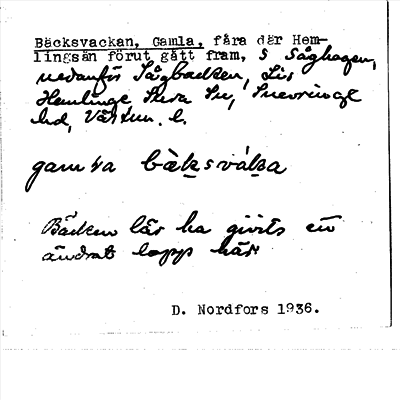 Bäcksvackan, Gamla, fåra där Hem-
lingsån förut gått fram, S Såghagen,
nedanför Sågbacken,
Hemlinge, Skva Sn, Snevringe
hd, Västm. l.
gam
Bäcken lär ha givits en
ändrat lopp här
D. Nordfors 1936.